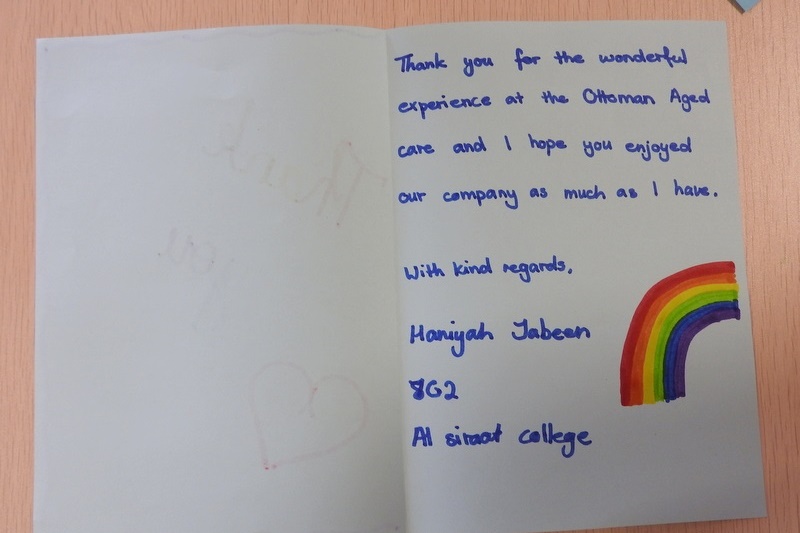 Thank
you
Thank you for the wonderful
experience at the Ottoman Aged
care and I hope you enjoyed
our company as much as I have.
With kind regards,
Haniyah Jabeen
8G2
Al siraat college